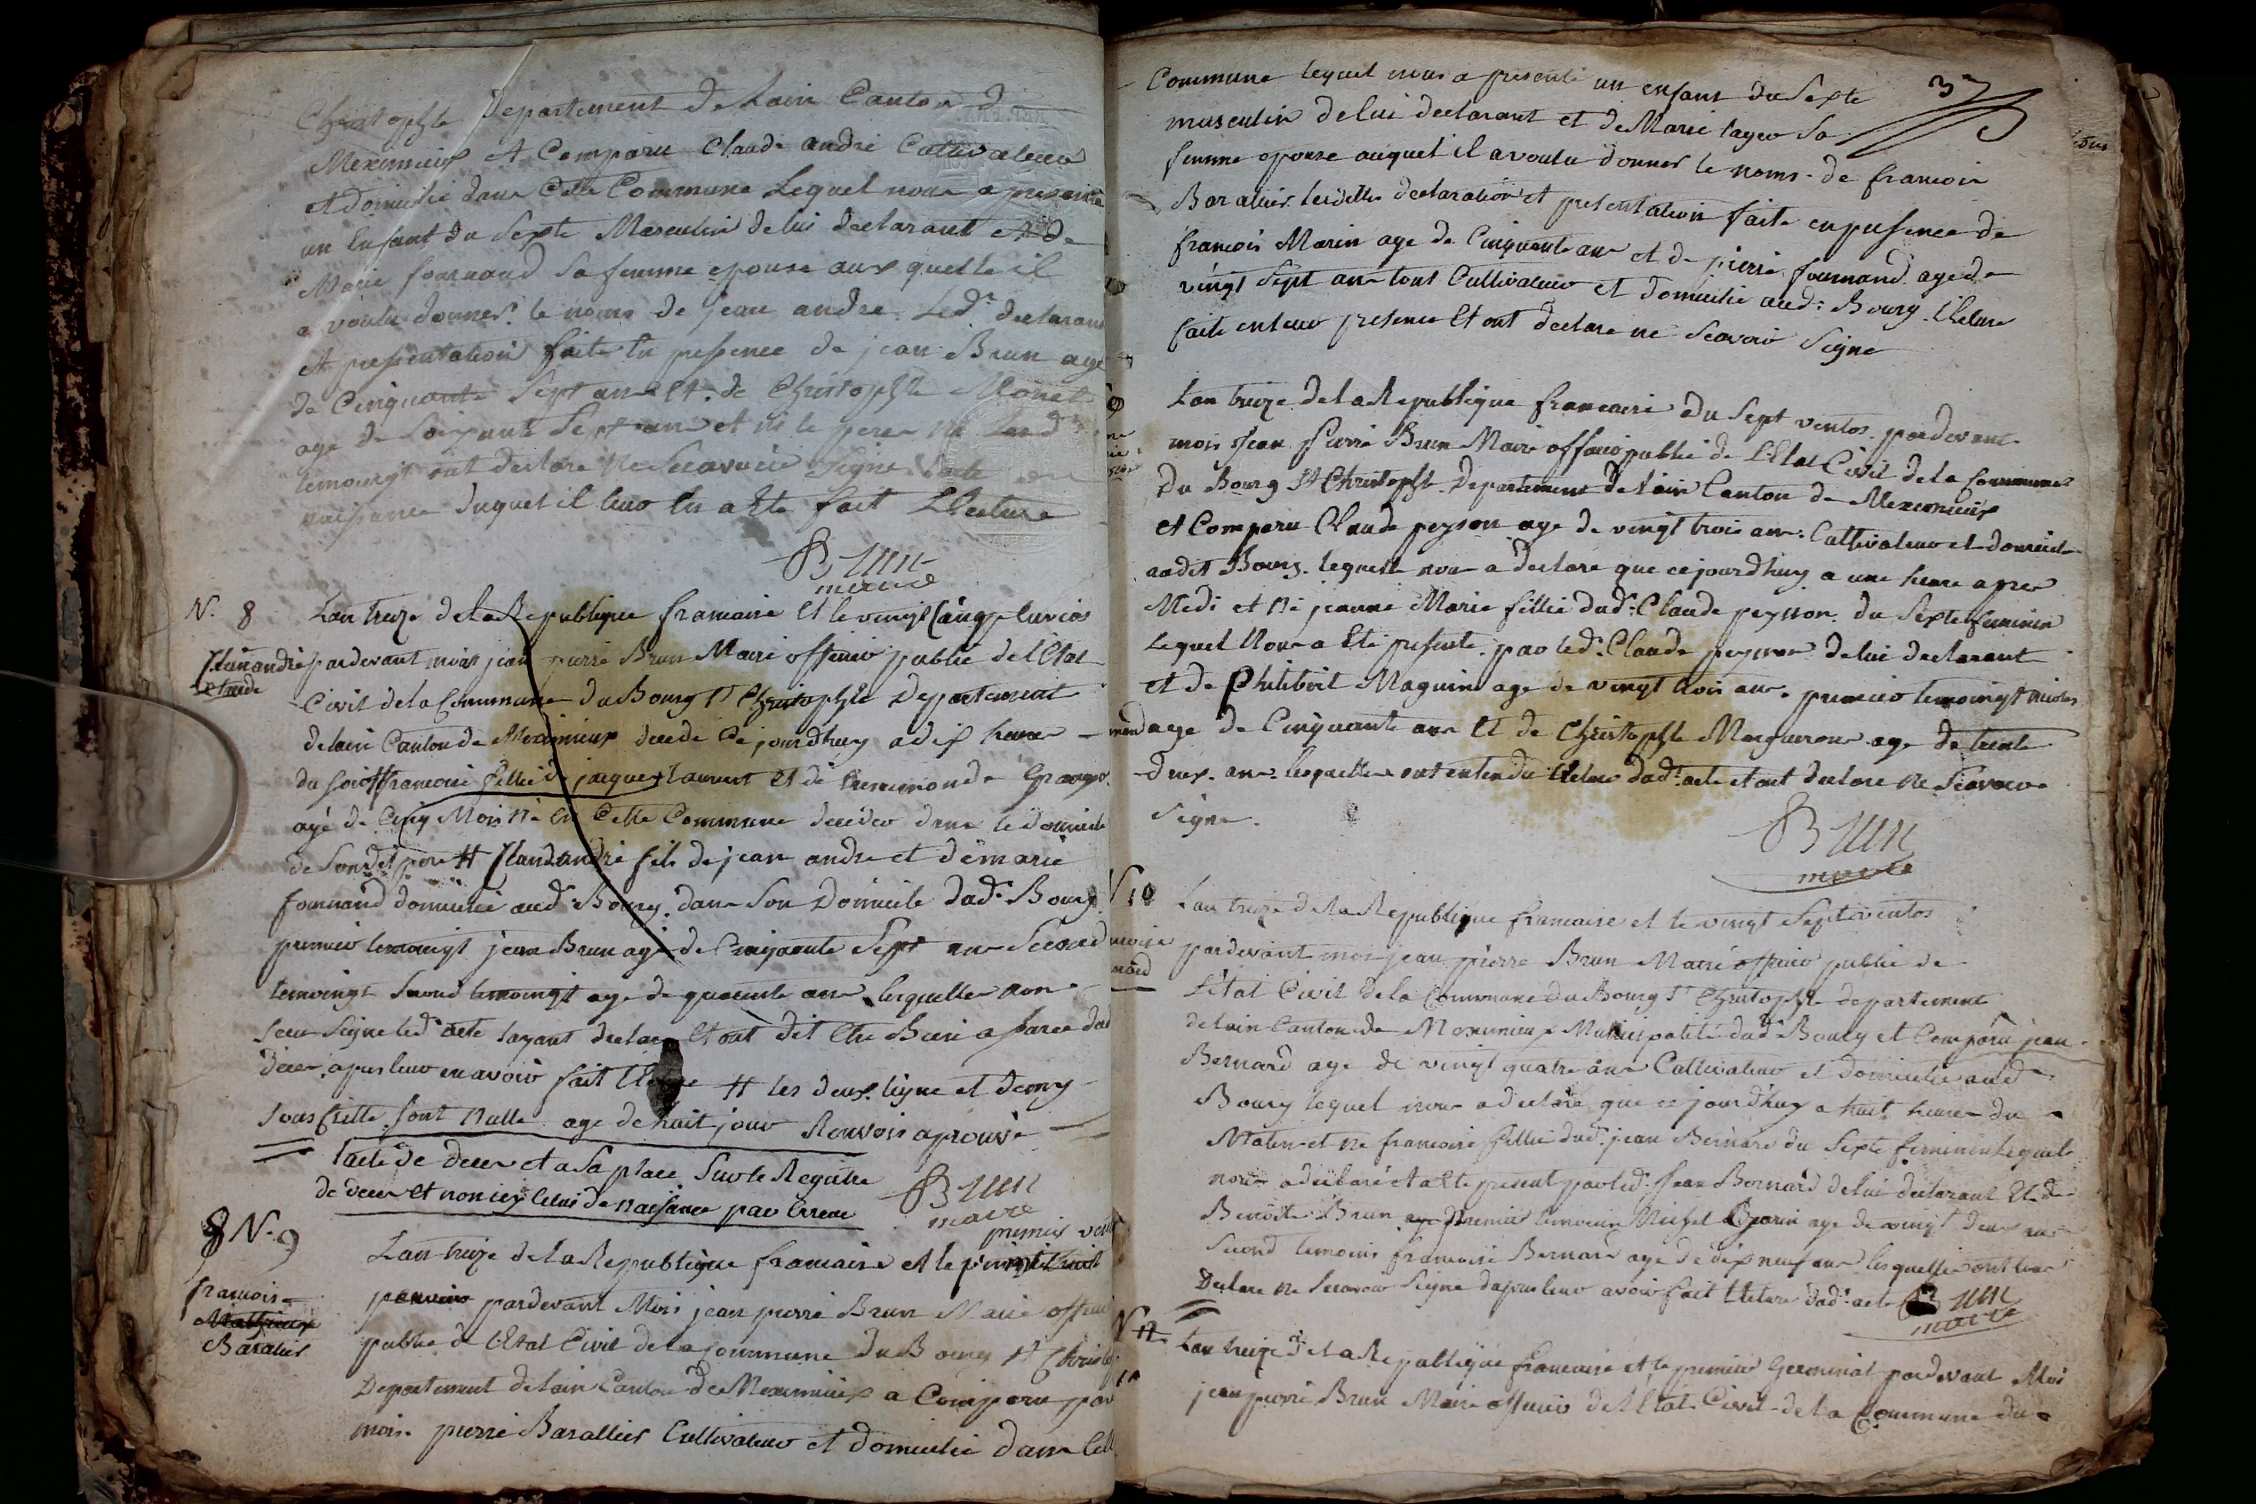 Christophle Departement de Lain Canton d
Meximieux et Comparu Claude andré Cultivateur
et domicilié dans Cette Commune Lequel nous a presenté
un Enfant du Sexte Masculin de lui declarant et de
Marie fournand Sa femme epouse aux quelle il
a voulu donner le noms de jean andre Led. declarant
et presentation faite En presence de jean Brun age
de Cinquante Sept ans et de Christophle Monet
age de Soixante Sept ans et le pere
temoingt ont declare Ne Scavoir Signe
naissance Duquel il leur En a Ete fait Llecture
Brun
maire
N. 8
Lan treze de la Republique francaise Et le vingt Cinq pluvios
Claud andre
pardevant mois jean pierre Brun Maire officier public de l'Etat
Civil de la Commune du Bourg St Christophle Departement
delain Canton de Meximieux decede Ce jourdhuy a dix heures
du soir francoise fillie de jacques Laurent Et de
age de Cinq Mois Né En Cette Commune decedeo dans le domicile
de Sondit pere # Claud andré fils de jean andre et de marie
fournand domicilié aud. Bourg. dans Son Domicile dud. Bourg
premier temoingt jean Brun age de Cinquante Sept ans Second
temoingt Second temoingt age de quarente ans lesquelles non
Sceu Signe led. acte layant declare Et ont dit Etre Bien a
deces, apres leur en avoir fait # les deux ligne et demy
Sous Critte sont Nulle age de huit jour Renvois aprouvé
lacte de deces et a Sa place Sur le Registre
de deces et non icy Celui de Naissance par Erreur
Brun
maire
8 N. 9
premier
Lan treize de la Republique francaise et le vingt huit
francois
Barallier
pardevant Mois jean pierre Brun Maire
public de l'Etat Civil de la Commune du Bourg St
Departement delain Canton de Meximieux a Comparu par
mois. pierre Barallier Cultivateur et domicilié dans
37
Commune lequel nous a presenté un enfant du Sexte
masculin de lui declarant et de Marie Sa
femme epouse auquel il a voulu donner le noms de francois
Barallier. declaration et presentation faite en presence de
francois Marin age de Cinquante ans et de pierre fournand age de
vingt Sept ans tous Cultivateur et domicilié aud. Bourg. Llecture
faite en leur presence Et ont declare ne Scavoir Signe
Lan treize de la Republique francaise du Sept ventos pardevant
mois Jean pierre Brun Maire officier public de L'Etat Civil de la Commune
Du Bourg St Christophle Departement de Lain Canton de Meximieux
et Comparu Claude peyson age de vingt trois ans Cultivateur et domicile
audit Bourg. lequelle nous a declare que ce jourdhuy a une heure apres
Medi et Né jeanne Marie fillie dud. Claude peysson du Sexte feminin
Lequel Nous a Eté presente par led. Claude peysson de lui declarant
et de Philibert Maguin age de vingt trois ans premier temoingt
age de Cinquante ans Et de Christophle age de trente
deux ans lesquelles ont entendu llecture dud. acte et ont declare ne Scavoir
Signe.
Brun
maire
N 10
Lan treize de la Republique francaise et le vingt Sept ventos
pardevant mois jean pierre Brun Maire officier public de
l'Etat Civil de la Commune du Bourg St Christophle departement
de lain Canton de Meximieux Municipalité dud. Bourg et Comparu jean
Bernard age de vingt quatre ans Cultivateur et domicilie aud.
Bourg lequel nous a declaré que ce jourdhuy a huit heures du
Matin et ne francoise fillie dud. jean Bernard du Sexte feminin Lequel
nous a declaré et a Ete present par led. Jean Bernard de lui declarant Et de
Benoite Brun premier temoin Michel age de vingt deux ans
Second temoins francoise Bernard age de dix neuf ans lesquelles ont
Declare ne Scavoir Signe dapres leur avoir fait llecture dud. acte Brun
maire
N 12
Lan treize de la Republique francaise et le premier Germinal pardevant Moi
jean pierre Brun Maire officier de l'Etat Civil de la Commune du